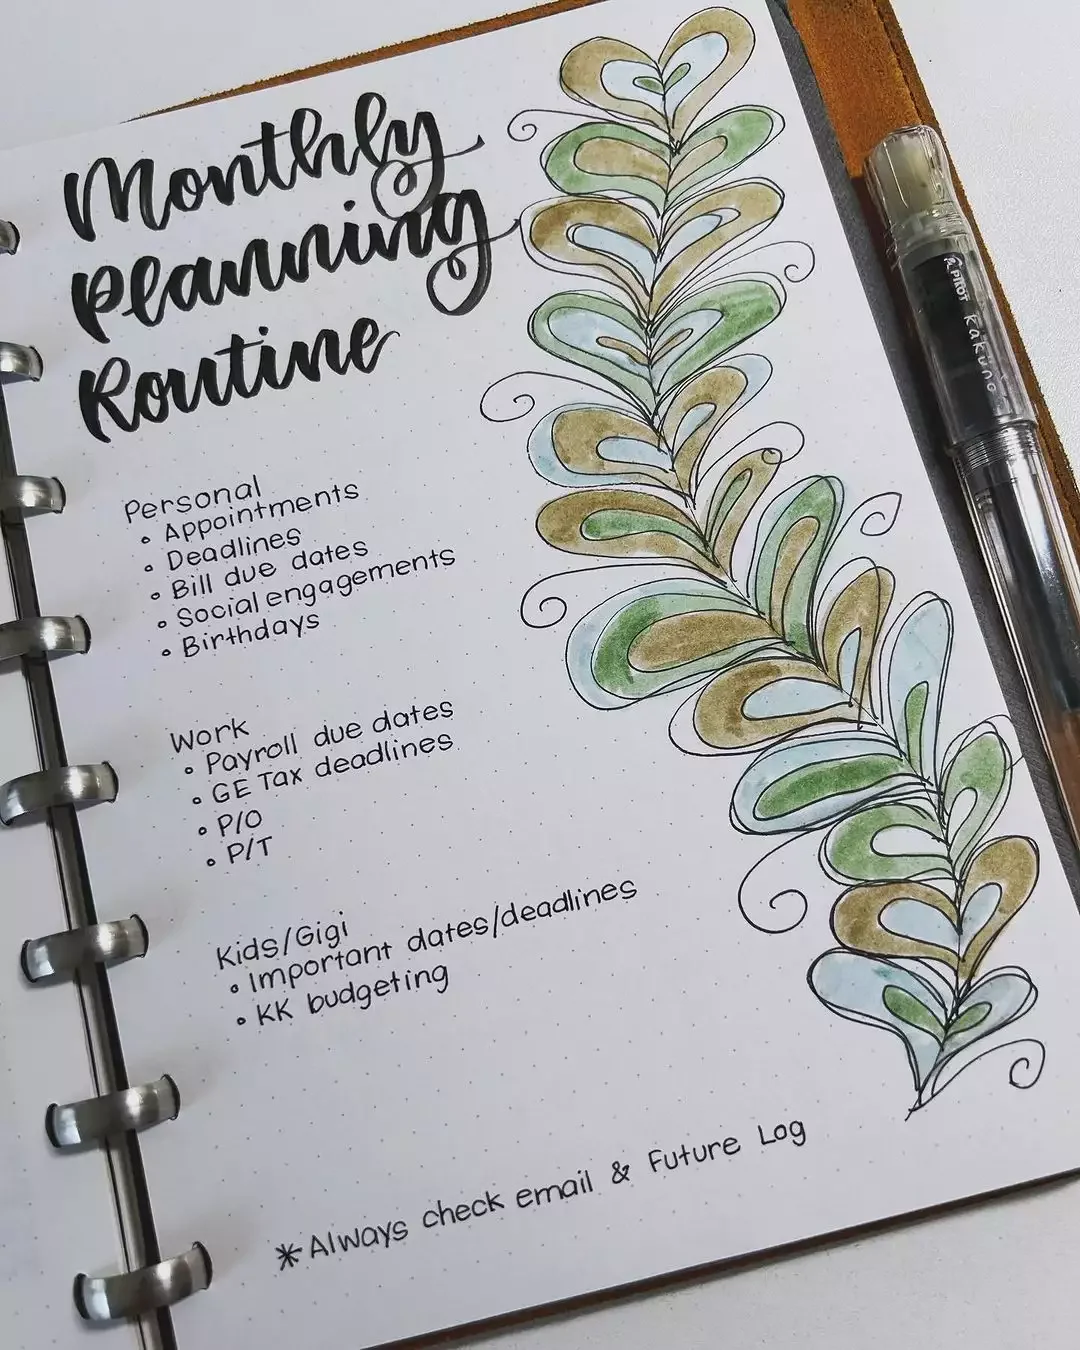 Monthly
Planning
Routine
Personal
• Appointments
• Deadlines
• Bill due dates
• Social engagements
• Birthdays
Work
• Payroll due dates
• GE Tax deadlines
• P/O
• P/T
Kids/Gigi
• Important dates/deadlines
• KK budgeting
*Always check email & Future Log
PILOT Kakuno